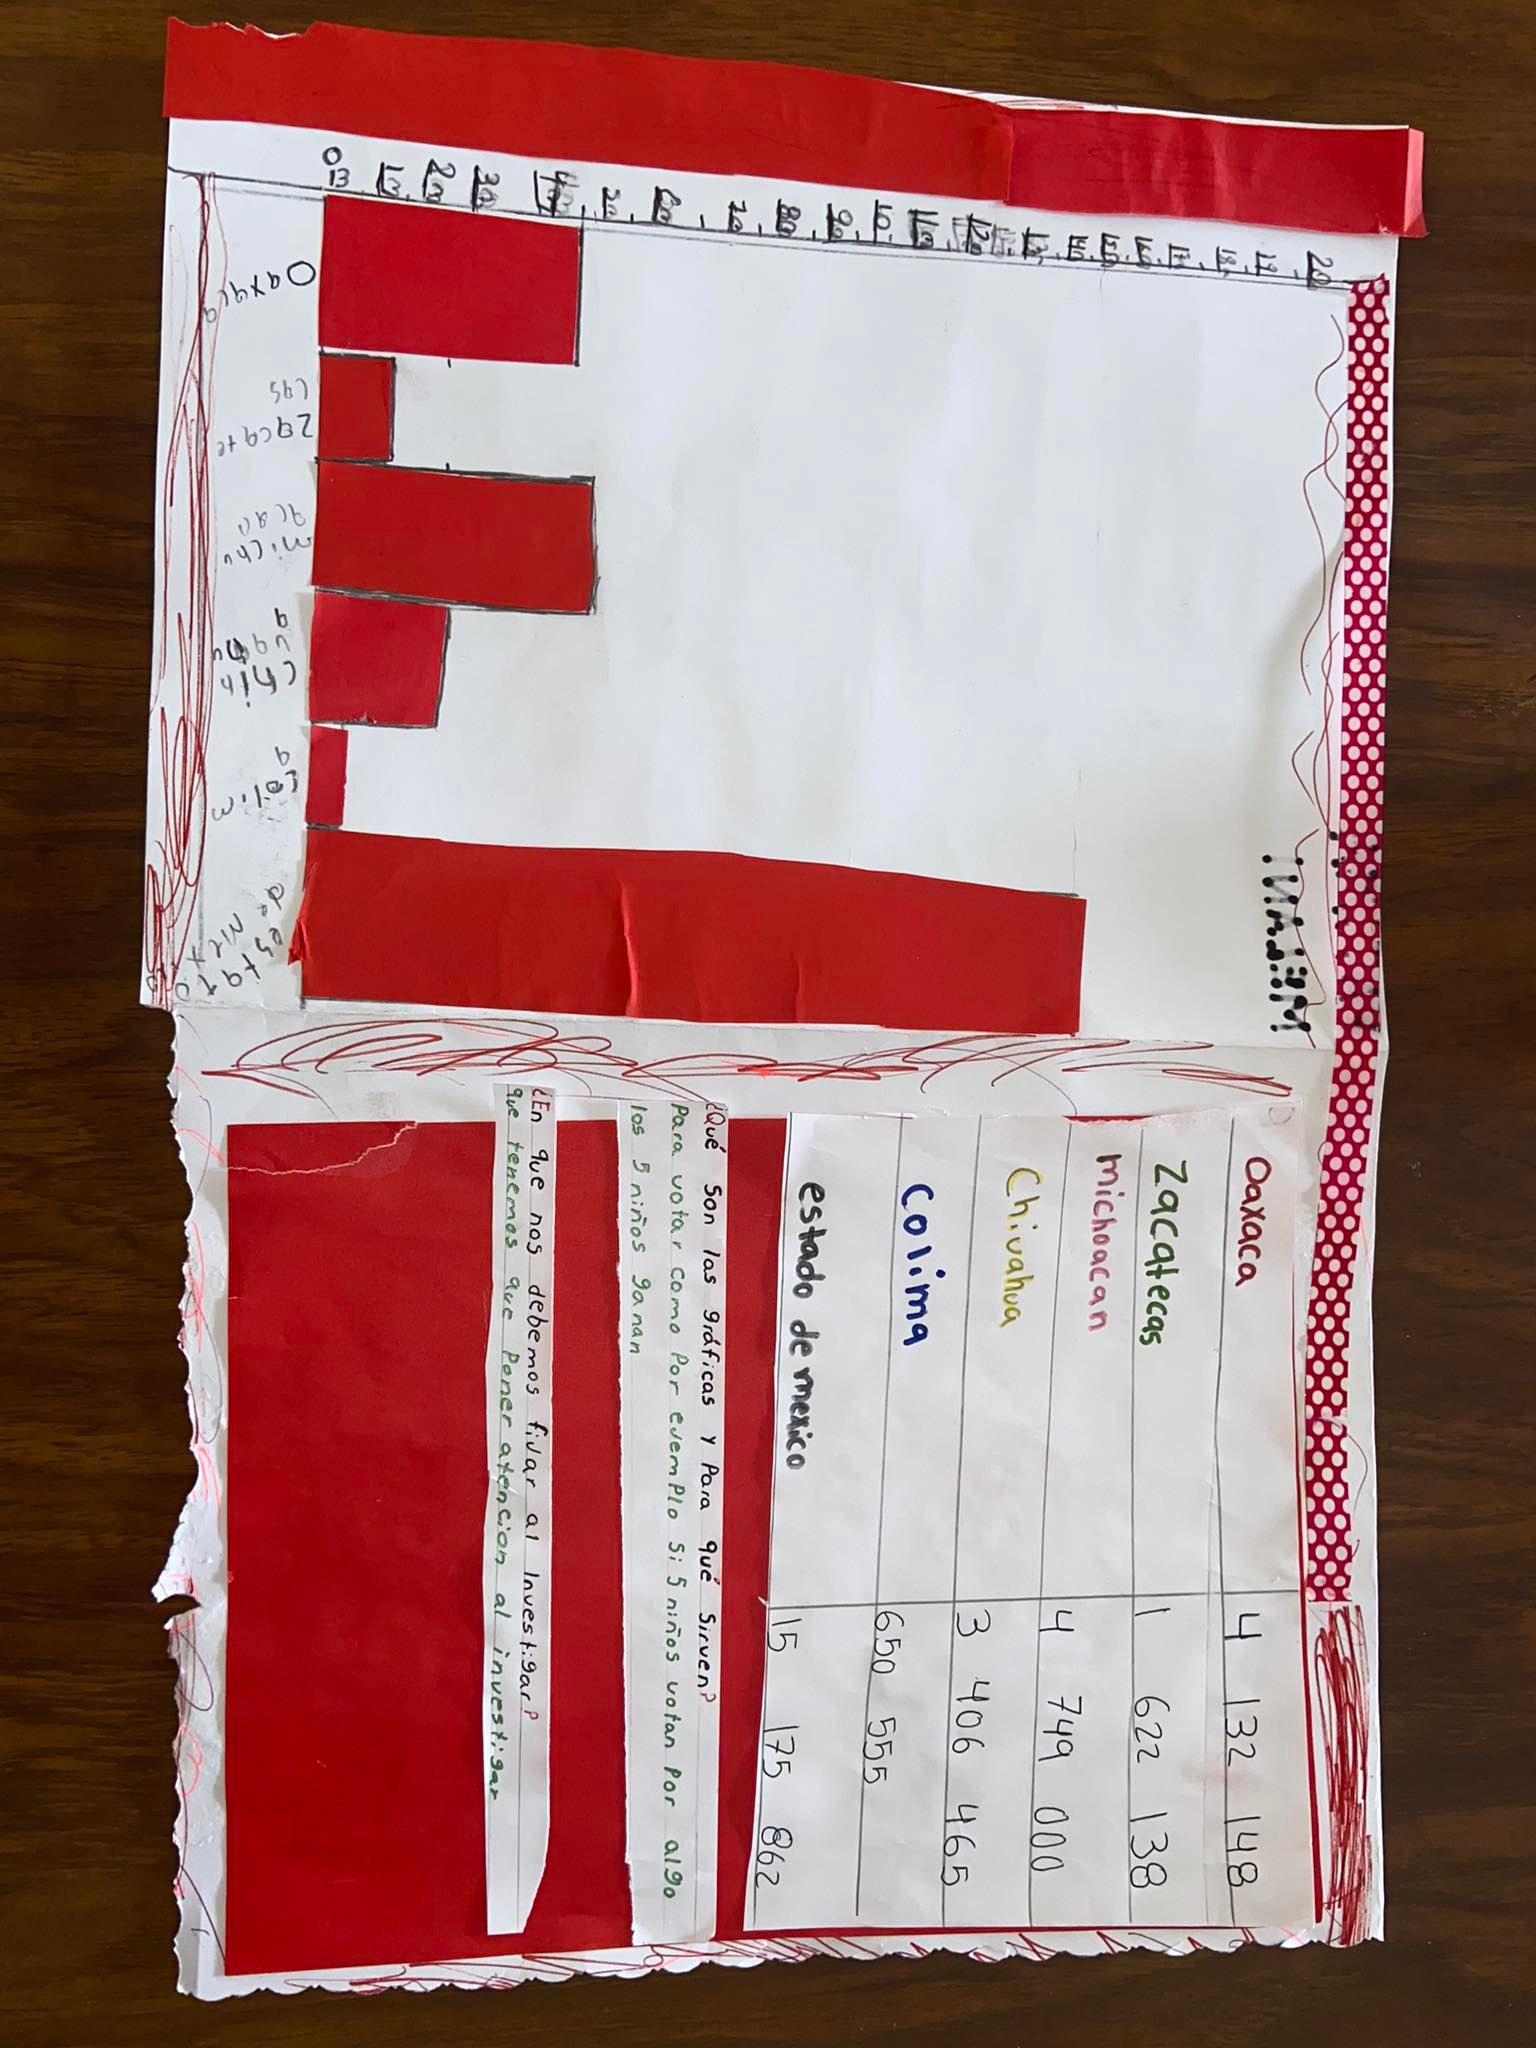 MELANI
20
19
18
17
12
11
10
9
80
70
60
50
40
30
20
10
0
Oaxaca
Zacate
cas
michu
acan
Chih
uahu
a
Colim
a
estado
de Mex
Oaxaca 4 132 148
Zacatecas 1 622 138
michoacan 4 749 000
Chiuahua 3 406 465
Colima 650 555
estado de mexico 15 175 862
¿Qué son las gráficas y Para qué sirven?
Para votar como Por evemplo si 5 niños votan Por algo
los 5 niños ganan
¿En que nos debemos fivar al investigar?
que tenemos que Poner atencion al investigar